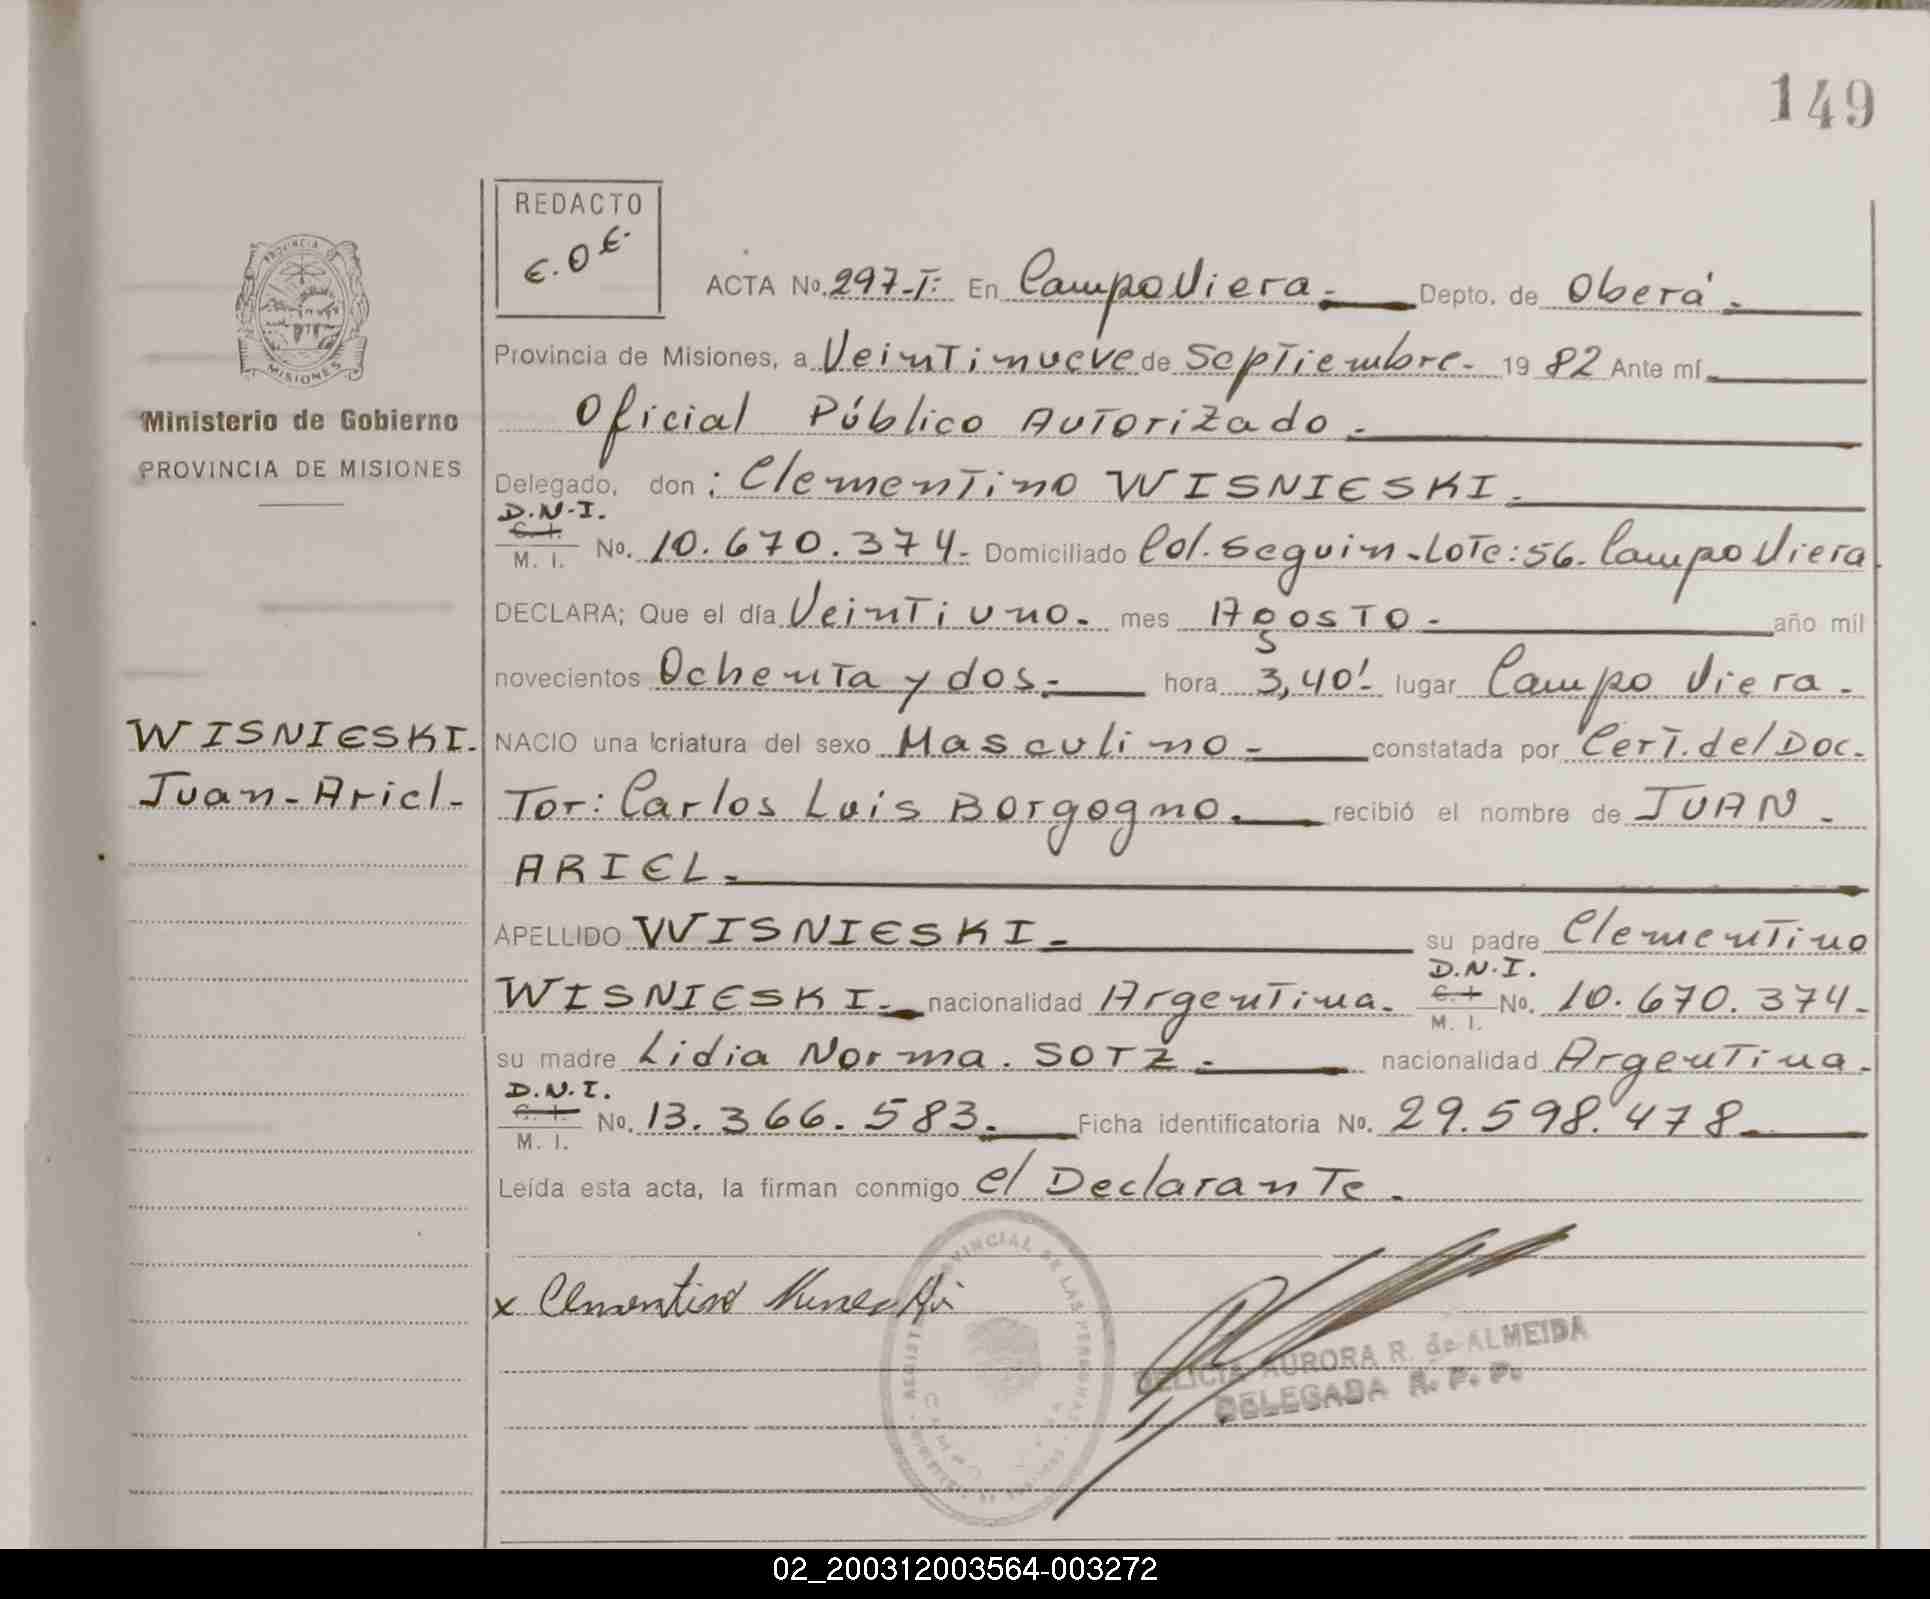 149
REDACTO
E.O.E.
ACTA No. 297-T: En Campo Viera.- Depto. de Oberá.-
Provincia de Misiones, a Veintinueve de Septiembre.- 1982 Ante mí
Oficial Público Autorizado.-
Delegado, don: Clementino WISNIESKI.
D.N.I.
C. I.
M. I. No. 10.670.374.- Domiciliado Col. Seguin-Lote: 56. Campo Viera
DECLARA; Que el día Veintiuno.- mes Agosto.- año mil
novecientos Ochenta y dos.- hora 3,40'.- lugar Campo Viera.-
NACIO una criatura del sexo Masculino.- constatada por Cert. del Doc-
tor: Carlos Luis Borgogno.- recibió el nombre de JUAN.-
ARIEL.-
APELLIDO WISNIESKI.- su padre Clementino
WISNIESKI.- nacionalidad Argentina.- D.N.I.
C. I.
M. I. No. 10.670.374.-
su madre Lidia Norma. SOTZ.- nacionalidad Argentina.-
D.N.I.
C. I.
M. I. No. 13.366.583.- Ficha identificatoria No. 29.598.478
Leída esta acta, la firman conmigo el Declarante.-
PROVINCIA DE
MISIONES
Ministerio de Gobierno
PROVINCIA DE MISIONES
WISNIESKI.
Juan-Ariel-
x Clementino
PROVINCIAL DE LAS PERSONAS
DELICIA AURORA R. de ALMEIDA
DELEGADA R. P. P.
02_200312003564-003272